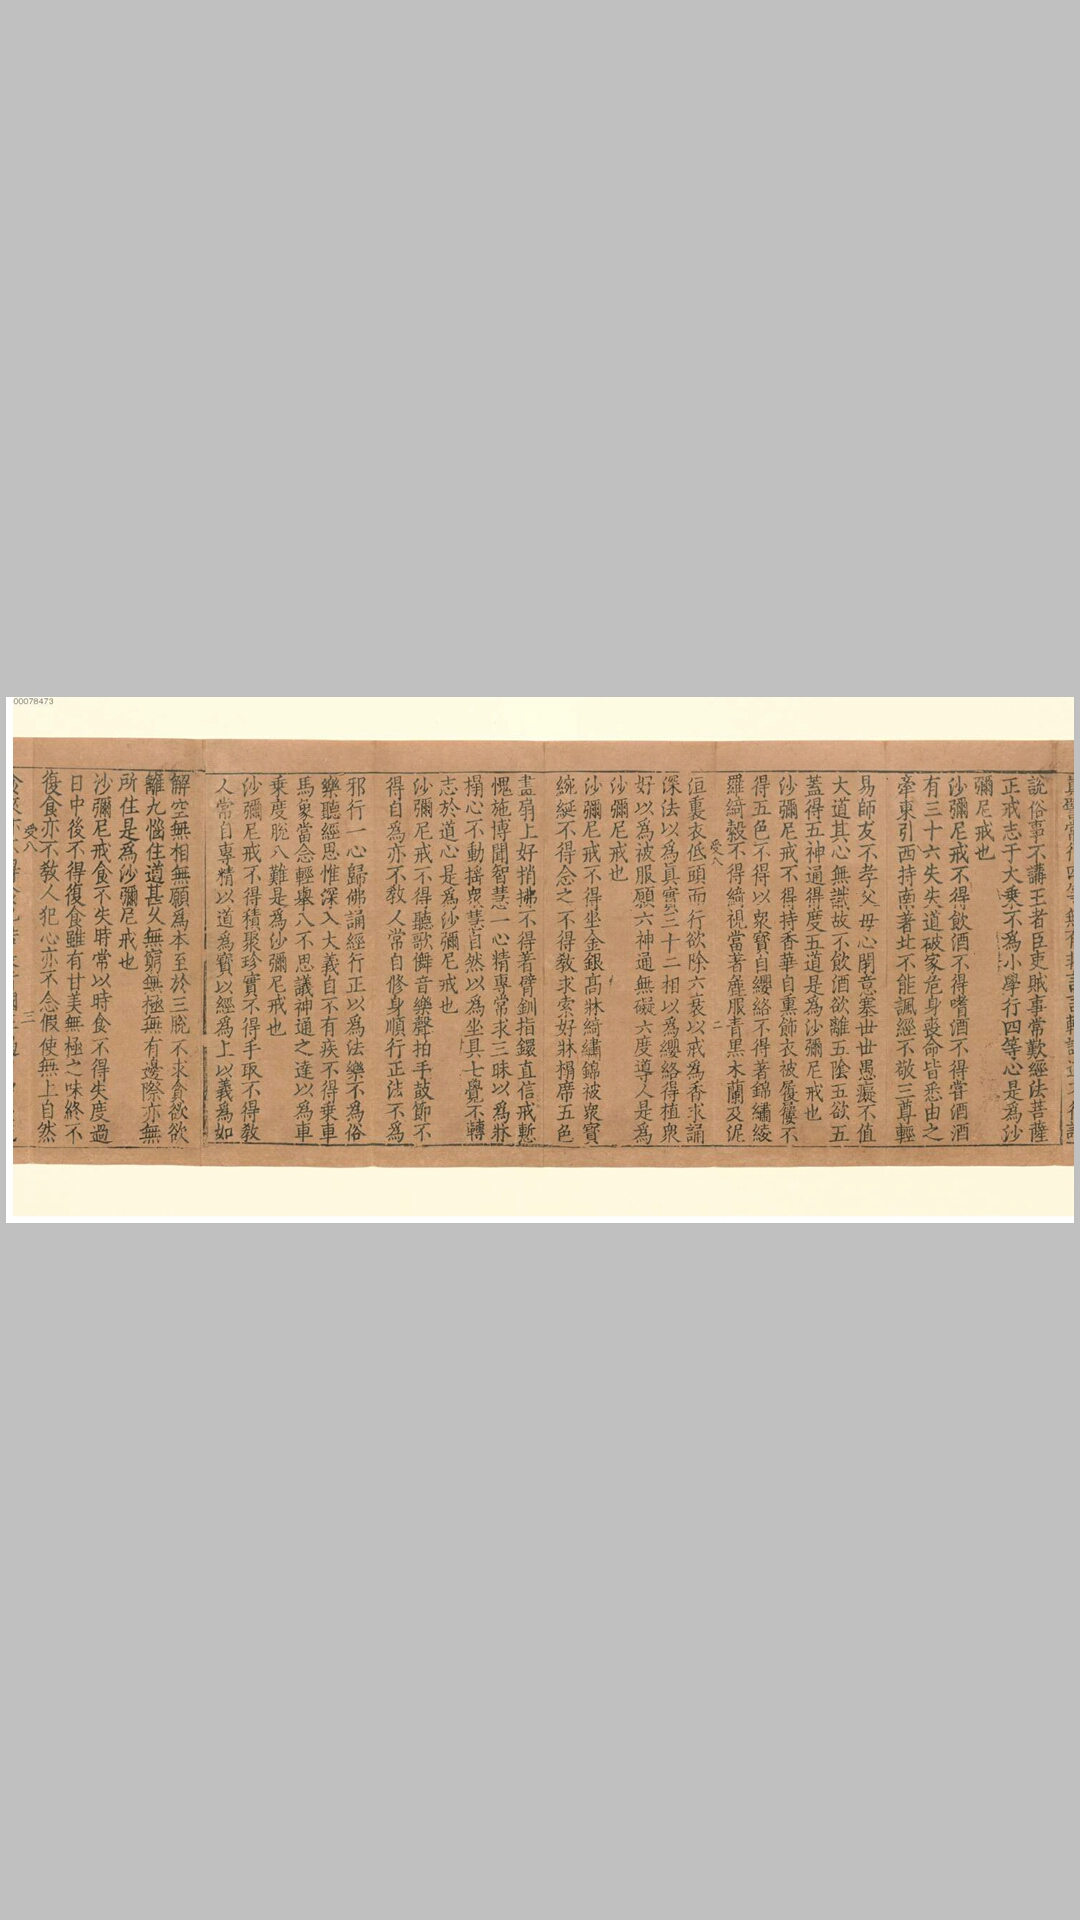 00078473
說俗事不講王者臣吏賊事常歎經法菩薩
正戒志于大乗不為小學行四等心是為沙
彌尼戒也
沙彌尼戒不得飲酒不得嗜酒不得甞酒酒
有三十六失失道破家危身喪命皆悉由之
牽東引西持南著北不能諷經不敬三尊輕
易師友不孝父母心閉意塞世世愚癡不值
大道其心無識故不飲酒欲離五陰五欲五
蓋得五神通得度五道是為沙彌尼戒也
沙彌尼戒不得持香華自熏飾衣被履屣不
得五色不得以衆寳自纓絡不得著錦繡綾
羅綺縠不得綺視當著麁服青黒木蘭及泥
受八 二
洹裏衣低頭而行欲除六衰以戒為香求誦
深法以為真實三十二相以為纓絡得植衆
好以為被服願六神通無礙六度導人是為
沙彌尼戒也
沙彌尼戒不得坐金銀髙牀綺繡錦被衆寳
綩綖不得念之不得教求索好牀榻席五色
畫扇上好拂不得著臂釧指鐶直信戒慙
愧施博聞智慧一心精專常求三昧以為牀
榻心不動摇衆慧自然以為坐具七覺不轉
志於道心是為沙彌尼戒也
沙彌尼戒不得聽歌儛音樂聲拍手鼓節不
得自為亦不教人常自修身順行正法不為
邪行一心歸佛誦經行正以為法樂不為俗
樂聽經思惟深入大義自不有疾不得乗車
馬象當念輕舉八不思議神通之達以為車
乗度脫八難是為沙彌尼戒也
沙彌尼戒不得積聚珍寳不得手取不得教
人常自專精以道為寳以經為上以義為如
解空無相無願為本至於三脫不求貪欲欲
離九惱住道甚久無窮無極無有邊際亦無
所住是為沙彌尼戒也
沙彌尼戒食不失時常以時食不得失度過
日中後不得復食雖有甘美無極之味終不
受八 三
復食亦不教人犯心亦不念假使無上自然